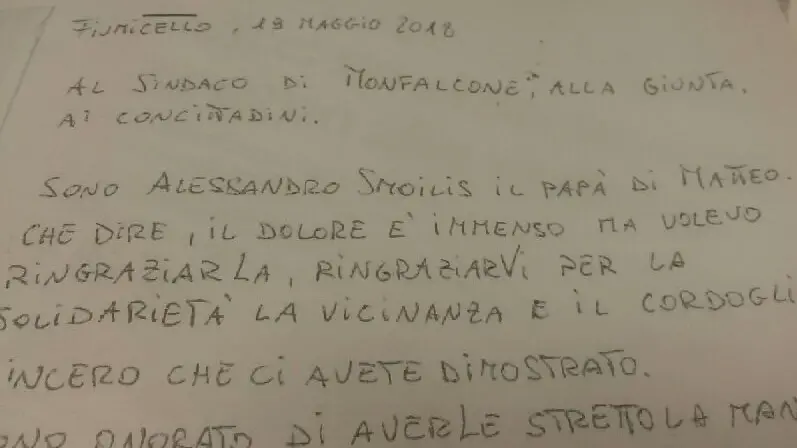 FIUMICELLO, 19 MAGGIO 2018
AL SINDACO DI MONFALCONE, ALLA GIUNTA,
AI CONCITTADINI.
SONO ALESSANDRO SMOILIS IL PAPÀ DI MATTEO.
CHE DIRE, IL DOLORE E' IMMENSO MA VOLEVO
RINGRAZIARLA, RINGRAZIARVI PER LA
SOLIDARIETA' LA VICINANZA E IL CORDOGLI
INCERO CHE CI AVETE DIMOSTRATO.
ONO ONORATO DI AVERLE STRETTO LA MAN